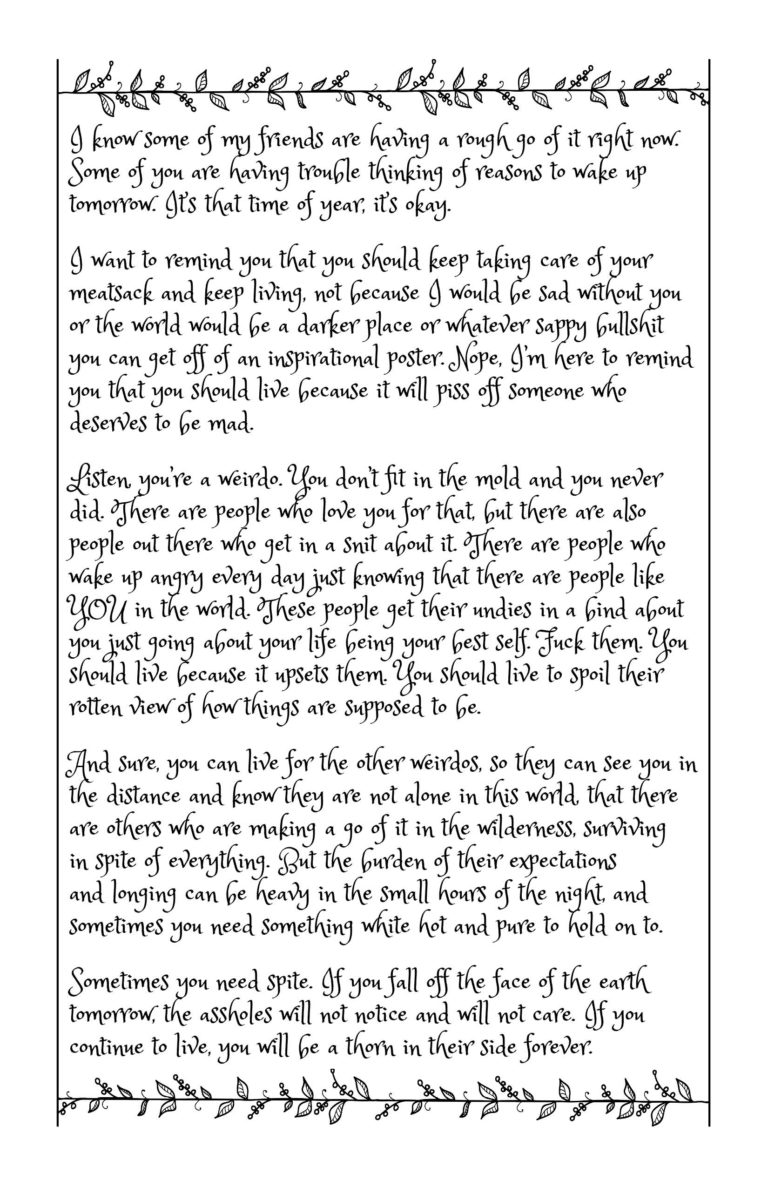 I know some of my friends are having a rough go of it right now.
Some of you are having trouble thinking of reasons to wake up
tomorrow. It's that time of year, it's okay.
I want to remind you that you should keep taking care of your
meatsack and keep living, not because I would be sad without you
or the world would be a darker place or whatever sappy bullshit
you can get off of an inspirational poster. Nope, I'm here to remind
you that you should live because it will piss off someone who
deserves to be mad.
Listen, you're a weirdo. You don't fit in the mold and you never
did. There are people who love you for that, but there are also
people out there who get in a snit about it. There are people who
wake up angry every day just knowing that there are people like
YOU in the world. These people get their undies in a bind about
you just going about your life being your best self. Fuck them. You
should live because it upsets them. You should live to spoil their
rotten view of how things are supposed to be.
And sure, you can live for the other weirdos, so they can see you in
the distance and know they are not alone in this world, that there
are others who are making a go of it in the wilderness, surviving
in spite of everything. But the burden of their expectations
and longing can be heavy in the small hours of the night, and
sometimes you need something white hot and pure to hold on to.
Sometimes you need spite. If you fall off the face of the earth
tomorrow, the assholes will not notice and will not care. If you
continue to live, you will be a thorn in their side forever.